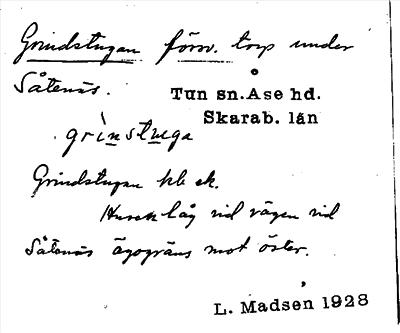 Grindstugan försv. torp under
Såtenäs.
Tun sn. Åse hd.
Skarab. län
grı̀nstuga
Grindstugan kb ek.
Huset låg vid vägen vid
Såtenäs ägogräns mot öster.
L. Madsén 1928